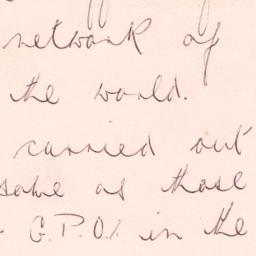 network of
the world.
carried out
same as those
G.P.O. in the